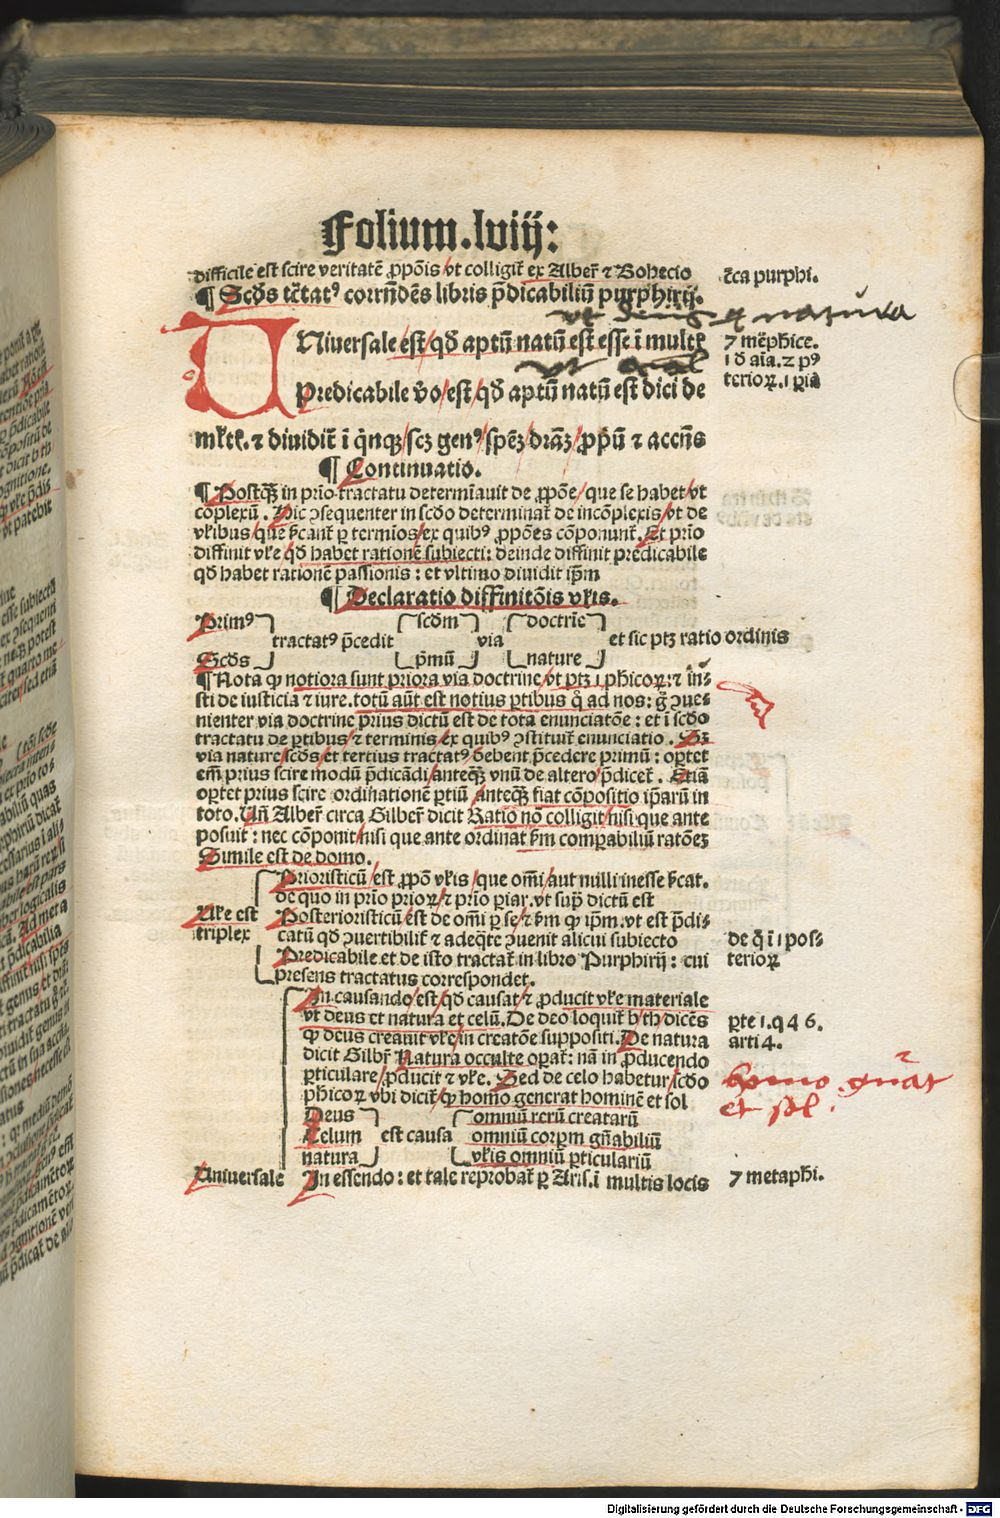 Folium.lviij:
difficile est scire veritatē ꝓpōis/vt colligit̄ ex Alber̄ ⁊ Bohecio
c̄ca purphi.
¶ Scd̓s tc̄tatꝰ corrn̄dēs libris p̄dicabiliū purphirij.
vt deus et natura
UNiversale est/qd̓ aptū natū est esse ī multꝭ
7 metͣphice.
ī d̓ aīa. ⁊ pꝰ
terioꝝ. ī pͥa
Predicabile v̓o/est/qd̓ aptū natū est dici de
ml̓tꝭ. ⁊ dividit̄ ī qͥnqꝫ/scꝫ genꝰ/spēꝫ/dr̄aꝫ/ꝓpͥū ⁊ accn̄s
¶ Continuatio.
¶ Postqͣꝫ in prīo tractatu determīauit de ꝓpōe/que se habet/vt
cōplexū. Hic ↄsequenter in scd̓o determinat̄ de incōplexis/vt de
vl̓ibus/que sͥcant̄ ꝑ termīos/ex quibꝰ ꝓpōes cōponunt̄. Et prīo
diffinit vl̓e qd̓ habet rationē subiecti: deinde diffinit predicabile
qd̓ habet rationē passionis: et vltimo diuidit ip̄m
¶ Declaratio diffinitōis vl̓is.
Primꝰ
Scd̓s
tractatꝰ p̄cedit
scd̓m
pͥmū
via
doctrīe
nature
et sic ptꝫ ratio ordinis
¶ Nota ꝙ notiora sunt priora via doctrine/vt ptꝫ ī phicoꝝ: ⁊ īn⸗
sti de iusticia ⁊ iure. totū aūt est notius ꝑtibus qͦ ad nos: g̓ ↄue⸗
nienter via doctrine prius dictū est de tota enunciatōe: et ī scd̓o
tractatu de ꝑtibus/⁊ terminis/ex quibꝰ ↄstituit̄ enunciatio. Sꝫ
via nature/scd̓s/et tertius tractatꝰ debent p̄cedere primū: oꝑtet
em̄ prius scire modū p̄dicādi/anteqͣꝫ vnū de altero p̄dicet̄. Etiā
oꝑtet prius scire ordinationē ꝑtiū/anteqͣꝫ fiat cōpositio ip̄arū in
toto. Uñ Alber̄ circa Gilber̄ dicit Ratio nō colligit/nisi que ante
posuit: nec cōponit/nisi que ante ordinat sͥm comꝑabiliū ratōeꝫ
Simile est de domo.
Vl̓e est
triplex
Prioristicū/est ꝓpō vl̓is/que om̄i/aut nulli inesse sͥcat.
de quo in prīo prioꝝ/⁊ prīo ꝑiar. vt supͣ dictū est
Posterioristicū/est de om̄i ꝑ se/⁊ sͥm ꝙ ip̄m. vt est p̄di⸗
catū qd̓ ↄuertibilit̄ ⁊ adeqͣte ↄuenit alicui subiecto
de qͦ ī ī pos⸗
terioꝝ
Predicabile et de isto tractat̄ in libro Purphirij: cui
presens tractatus correspondet.
In causando/est/qd̓ causat/⁊ ꝓducit vl̓e materiale
vt deus et natura et celū. De deo loquit̄ b/th/dicēs
ꝑte 1. q 4 6.
ꝙ deus creauit vl̓e/in creatōe suppositi. De natura
arti 4.
dicit Gilbr̄ Natura occulte oꝑat̄: nā in ꝓducendo
ꝑticulare/ꝓducit ⁊ vl̓e. Sed de celo habetur/scd̓o
homo gn̄at
phicoꝝ vbi dicit̄/ꝙ homo generat hominē et sol
et sol.
Deus
Celum
natura
est causa
omniū rerū creatarū
omniū corꝑm gn̄abiliū
vl̓is omniū ꝑticulariū
Uniuersale
In essendo: et tale reprobat̄ ꝑ Aris. ī multis locis
7 metaphi.
Digitalisierung gefördert durch die Deutsche Forschungsgemeinschaft - DFG